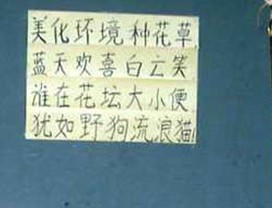 美化环境种花草
蓝天欢喜白云笑
谁在花坛大小便
犹如野狗流浪猫